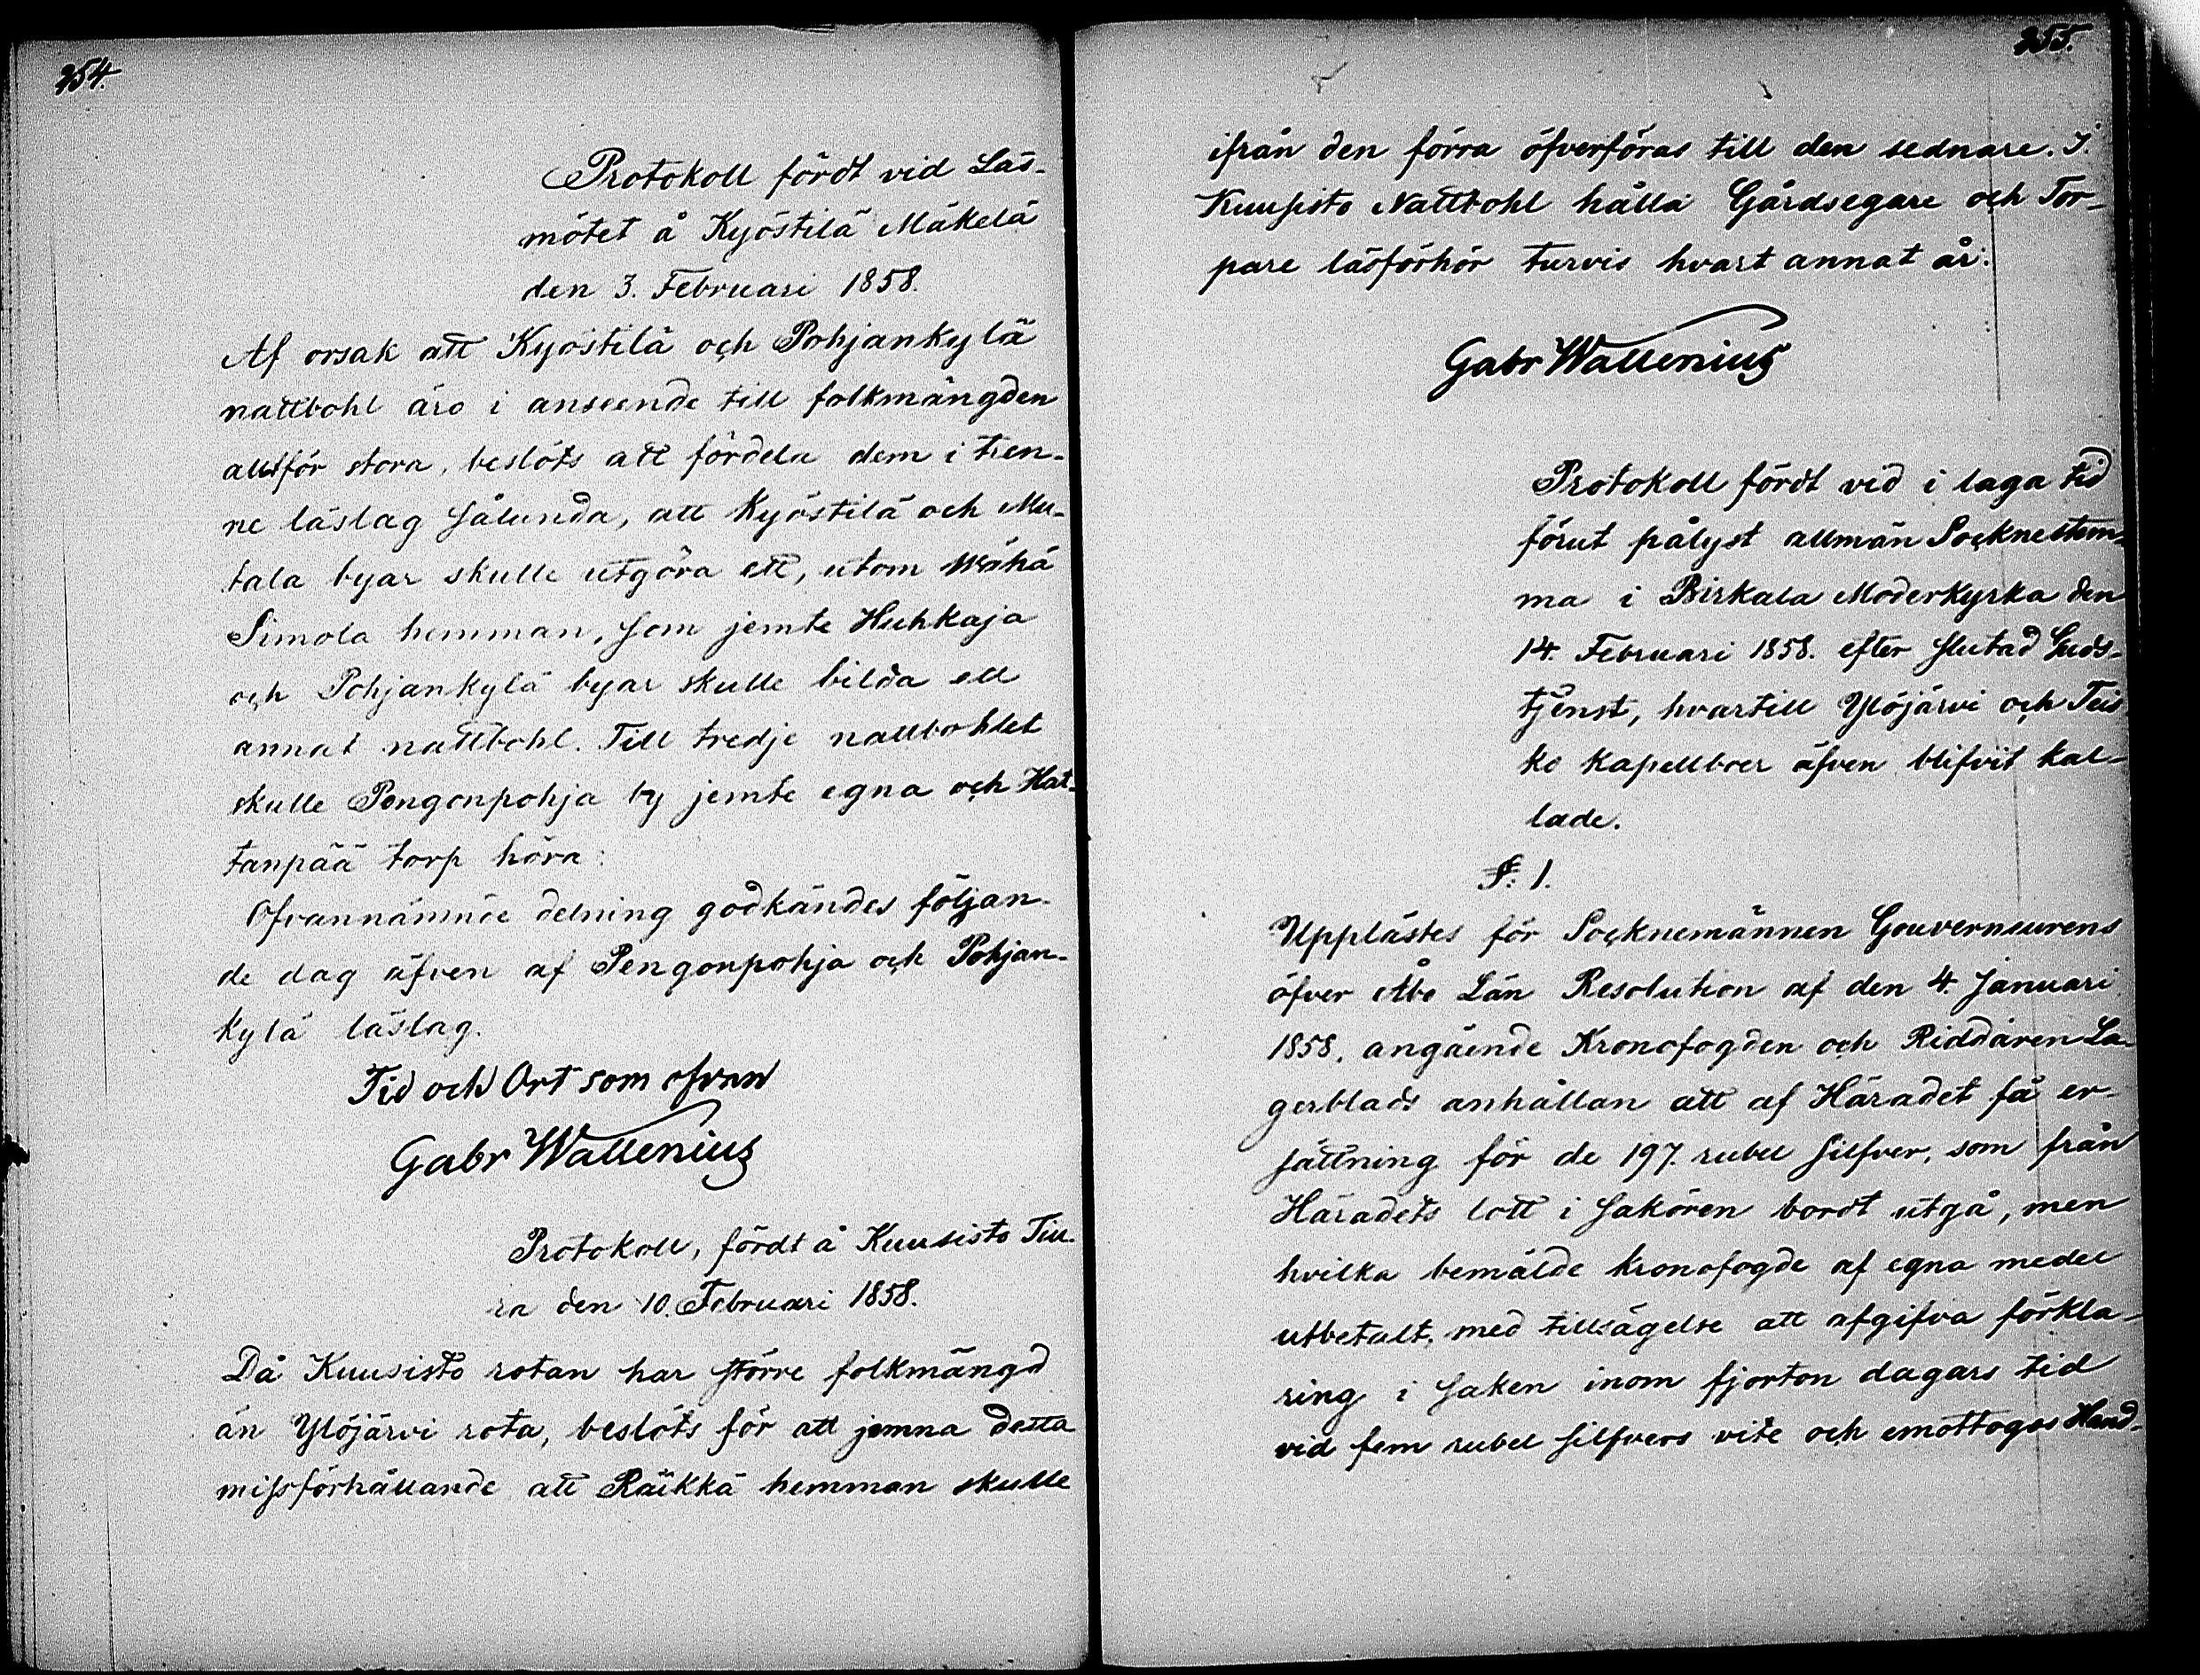 254.
Protokoll fördt vid Läs-
mötet å Kyöstilä Mäkelä
den 3. Februari 1858.
Af orsak att Kyöstilä och Pohjankylä
nattbohl äro i anseende till folkmängden
alltför stora, beslöts att fördela dem i tren-
ne läslag sålunda, att Kyöstilä och Mu-
tala byar skulle utgöra ett, utom Wähä
Simola hemman, som jemte Huhkaja
och Pohjankylä byar skulle bilda ett
annat nattbohl. Till tredje nattbohlet
skulle Pengonpohja by jemte egna och Hat-
tanpää torp höra:
Ofvannämnde delning godkändes följan-
de dag äfven af Pengonpohja och Pohjan-
kylä läslag.
Tid och Ort som ofvan
Gabr Wallenius
Protokoll, fördt å Kuusisto Tiu-
ra den 10. Februari 1858.
Då Kuusisto rotan har större folkmängd
än Ylöjärvi rota, beslöts för att jemna detta
missförhållande att Räikkä hemman skulle
255.
ifrån den förra öfverföras till den sednare. I
Kuusisto Nattbohl hålla Gårdsegare och Tor-
pare läsförhör turvis hvart annat år:
Gabr Wallenius
Protokoll fördt vid i laga tid
förut pålyst allmän Socknestem-
ma i Birkala Moderkyrka den
14. Februari 1858. efter slutad Guds-
tjenst, hvartill Ylöjärvi och Teis
ko Kapellboer äfven blifvit kal-
lade.
§. 1.
Upplästes för Socknemännen Gouverneurens
öfver Åbo Län Resolution af den 4. Januari
1858, angående Kronofogden och Riddaren La-
gerblads anhållan att af Häradet få er-
sättning för de 197. rubel silfver, som från
Häradets lott i sakören bordt utgå, men
hvilka bemälde kronofogde af egna medel
utbetalt, med tillsägelse att afgifva förkla-
ring i saken inom fjorton dagars tid
vid fem rubel silfvers vite och emottogos Hand-